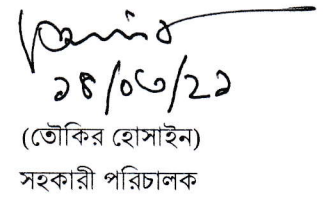 ১৪/০৩/২১
(তৌকির হোসাইন)
সহকারী পরিচালক